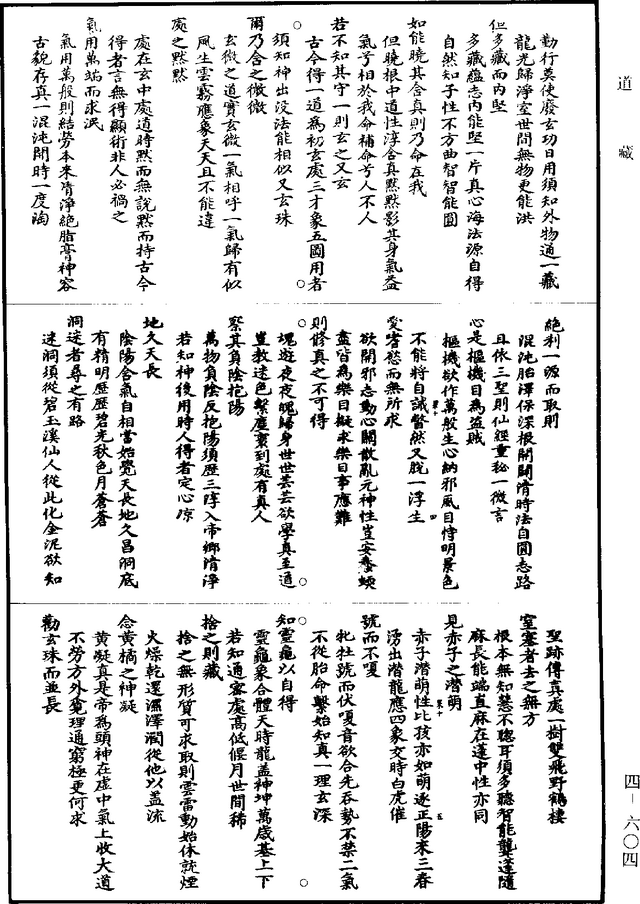 道藏
勤行莫使廢玄功日用須知外物通一藏
龍光歸淨室世間無物更能洪
但多藏而內堅
多藏蘊志內能堅一片真心海法源自得
自然知子性不方曲智智能圓
如能曉其含真則乃命在我
但曉根中道性淳含真默默影其身氣益
氣予相於我命補命兮人不人
若不知其守一則玄之又玄
古今得一道為初玄處三才象五圓用者
須知神出没法能相似又玄珠
爾乃含之微微
玄微之道實玄微一氣相呼一氣歸有似
風生雲霧應象天天且不能違
處之默默
處在玄中處道時默而無說默而持古今
得者言無得顯術非人必禍之
氣用萬端而求泯
氣用萬般則結勞本來清淨絶脂膏神容
古貌存真一混沌開時一度陶
絶利一源而取則
混沌胎渾保深根開闢清時法自圓志路
且依三聖則仙經重秘一微言
心是樞機目為盜賊
樞機欲作萬般生心納邪風目恃明景色
不能將自誡瞥然又脱一浮生
愛皆慾而無所求
欲開邪志動心關散亂元神性豈安蠢蝡
盡皆為樂日擬求樂日事應難
則修真之不可得
魂遊夜夜魄歸身世世芸芸欲學真至道
豈教迷色繫塵裏到處有真人
察其負陰抱陽
萬物負陰反抱陽須歷三淳入帝鄉清淨
若知神後用時人得者定心凉
地久天長
陰陽合氣自相當始覺天長地久昌洞底
有精明歷歷碧光秋色月蒼蒼
洞迷者尋之有路
迷洞須從碧玉溪仙人從此化金泥欲知
聖跡傳真處一樹雙飛野鶴棲
窒塞者去之無方
根本無知慧不聰耳須多聽智能龔蓬隨
麻長能端直麻在蓬中性亦同
見赤子之潜萌
赤子潜萌性比孩亦如萌逐正陽來三春
湧出潜龍應四象交時白虎催
號而不嗄
牝牡號而伏嗄音欲合先吞勢不禁二氣
不從胎命繫始知真一理玄深
知靈龜以自得
靈龜象合體天時龍蓋神坤萬歲基上下
若知通靈處高低偃月世間稀
捨之則藏
捨之無形質可求取則雲雷動始休就煙
火燥乾還濕澤潤從他以蓋流
念黃橘之神凝
黃凝真是帝為頭神在虛中氣上收大道
不勞方外覓理通窮極更何求
勸玄珠而並長
四－六〇四